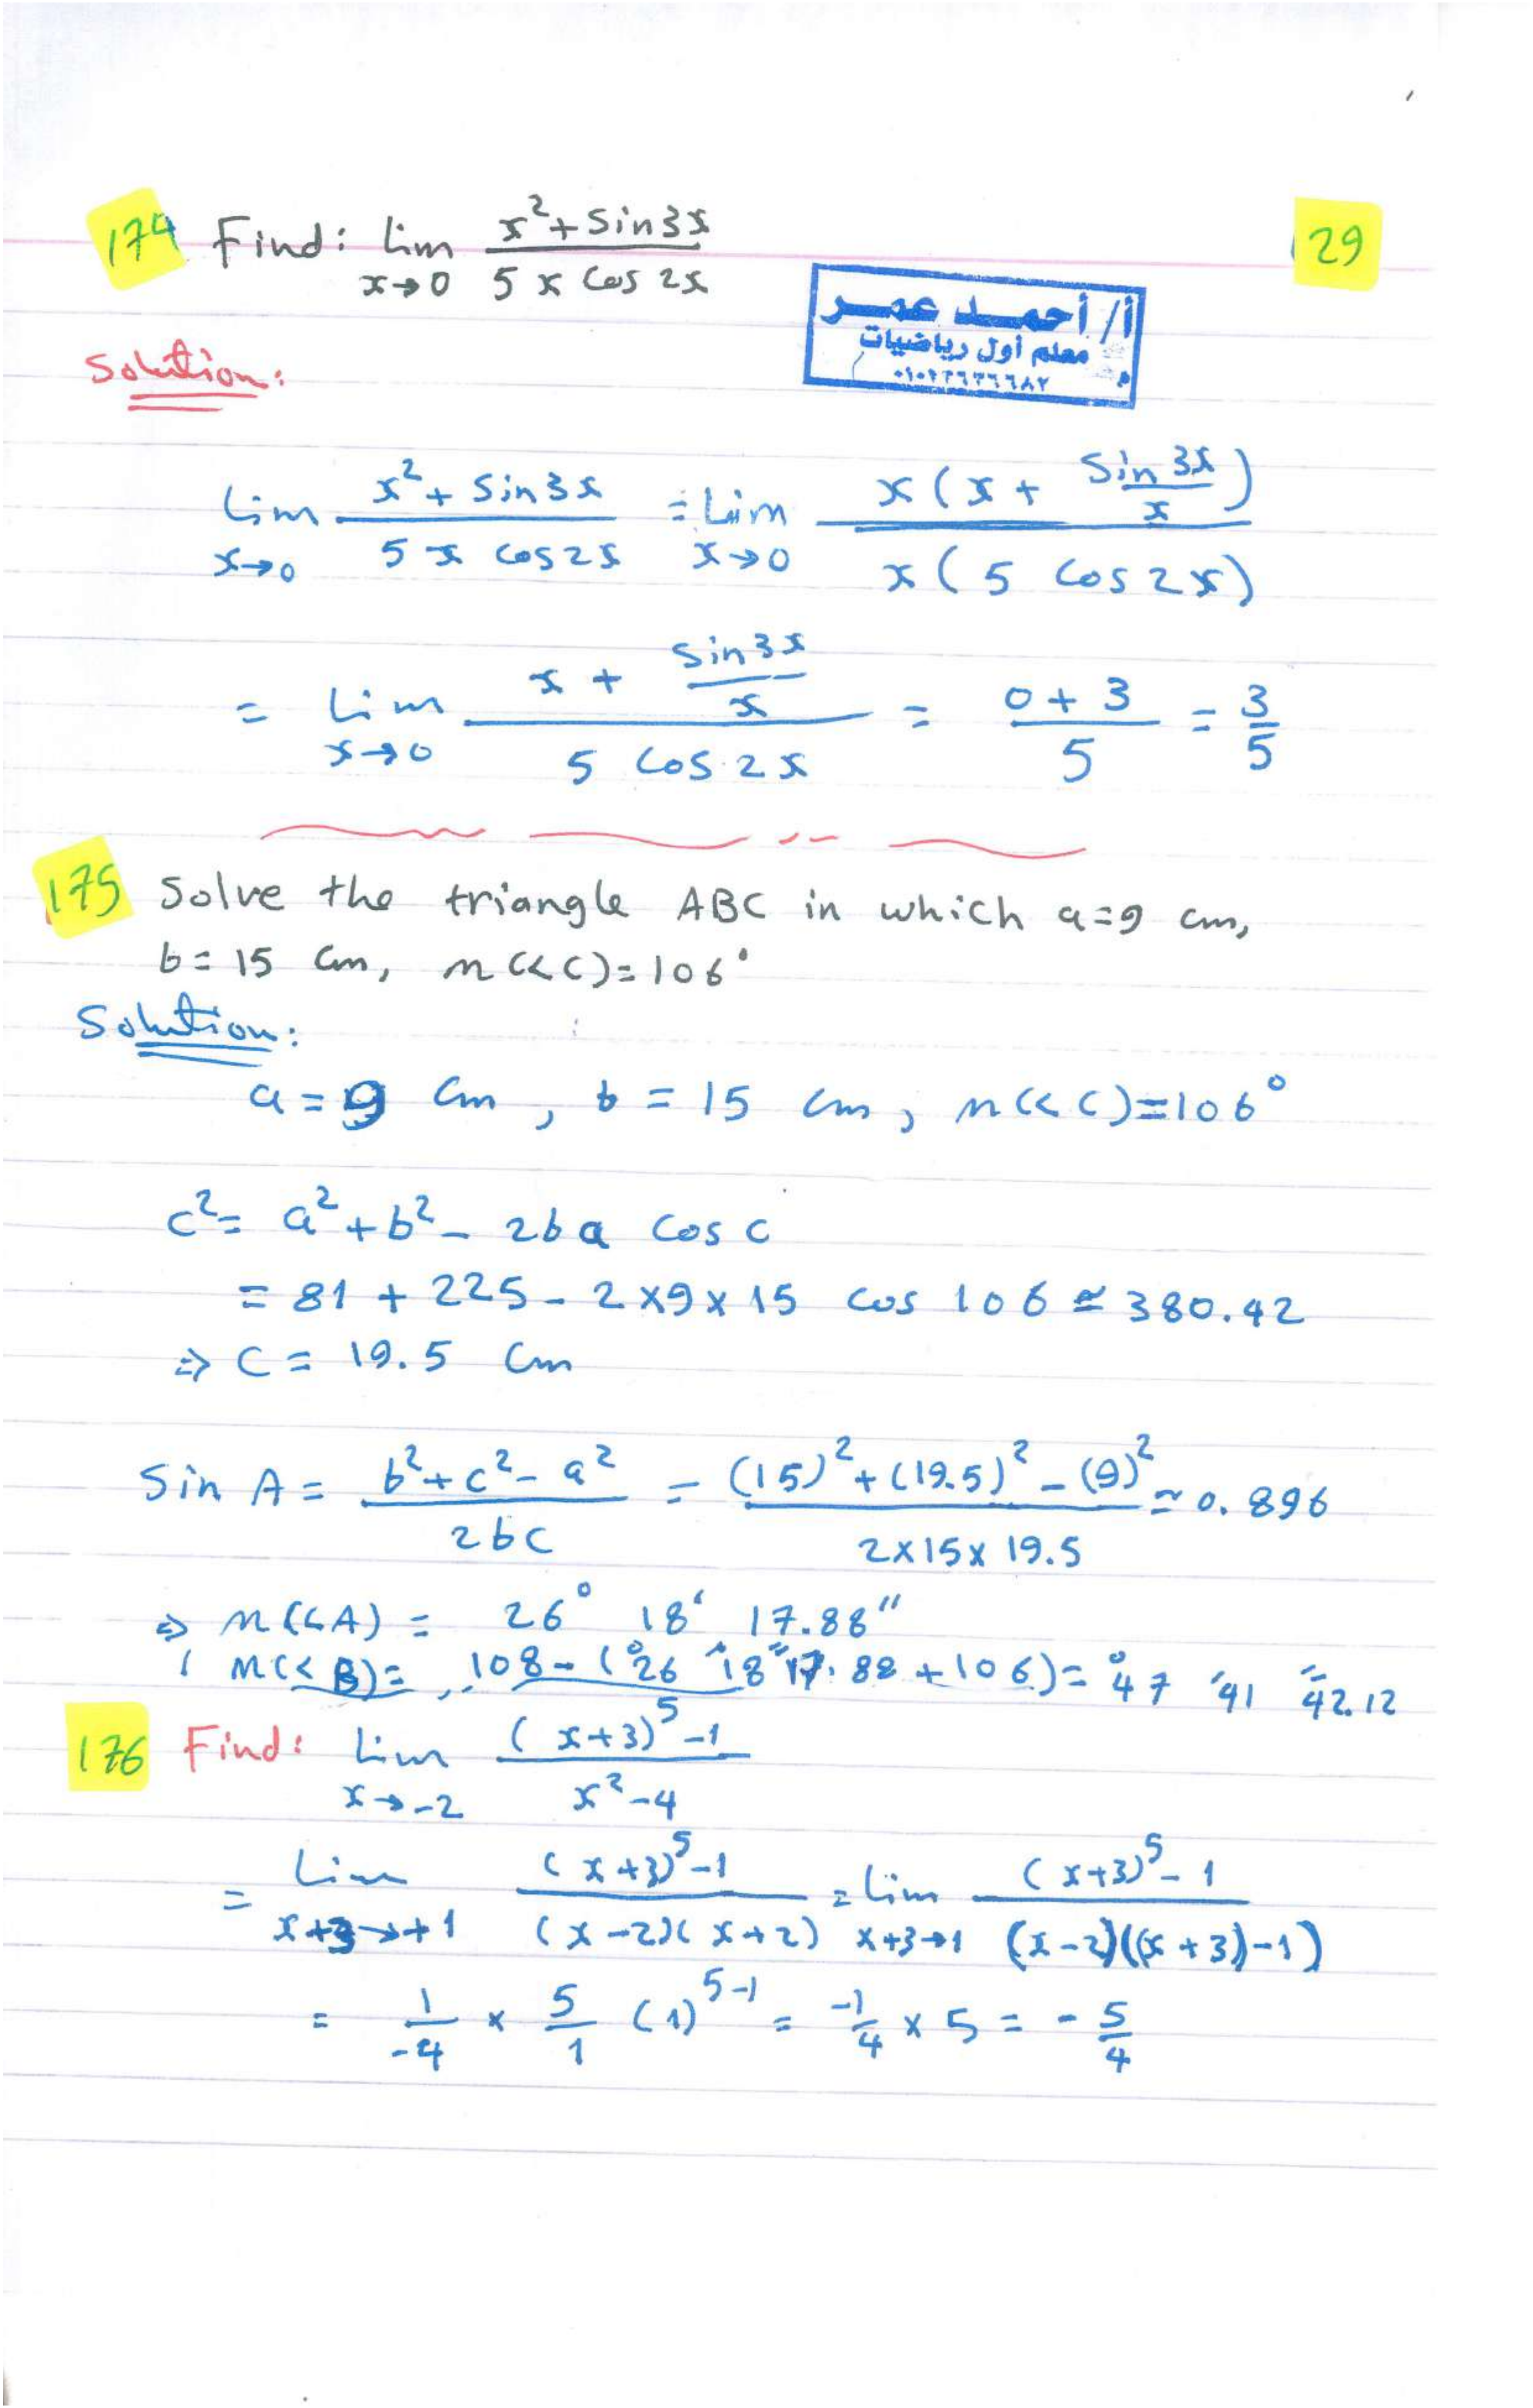 174 Find: lim x→0 (x² + sin3x)/(5x cos 2x)
29
أ/ أحمد عمر
معلم أول رياضيات
Solution:
lim x→0 (x² + sin3x)/(5x cos2x) = Lim x→0 x(x + sin 3x/x)/x(5 cos 2x)
= Lim x→0 (x + sin3x/x)/(5 cos 2x) = (0+3)/5 = 3/5
175 Solve the triangle ABC in which a=9 cm,
b=15 cm, m(<C)=106°
Solution:
a = 9 cm, b = 15 cm, m(<C)=106°
c² = a² + b² - 2ba cos c
= 81 + 225 - 2×9×15 cos 106 ≃ 380.42
⇒ C = 19.5 cm
Sin A = (b²+c²-a²)/2bc = ((15)²+(19.5)²-(9)²)/(2×15×19.5) ≃ 0.896
⇒ m(<A) = 26° 18' 17.88"
, m(<B) = 108-(°26 '18 "17.88 + 106) = °47 '41 "42.12
176 Find: Lim x→-2 ((x+3)⁵-1)/(x²-4)
= Lim x+3→+1 ((x+3)⁵-1)/((x-2)(x+2)) = lim x+3→1 ((x+3)⁵-1)/((x-2)((x+3)-1))
= 1/-4 × 5/1 (1)⁵⁻¹ = -1/4 × 5 = -5/4